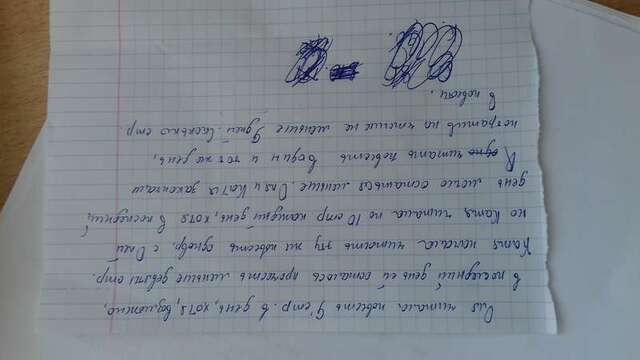 Оля читала повесть 9 стр. в день, хотя, возможно,
в последний день ей осталось прочесть меньше девяти стр.
Катя начала читать эту же повесть одновр. с Олей
но Катя читала по 10 стр каждый день, хотя в последний
день могло остаться меньше. Оля и Катя закончили
читать повесть в один и тот же день,
потратив на чтение не меньше 9 дней. Сколько стр.
в повести.